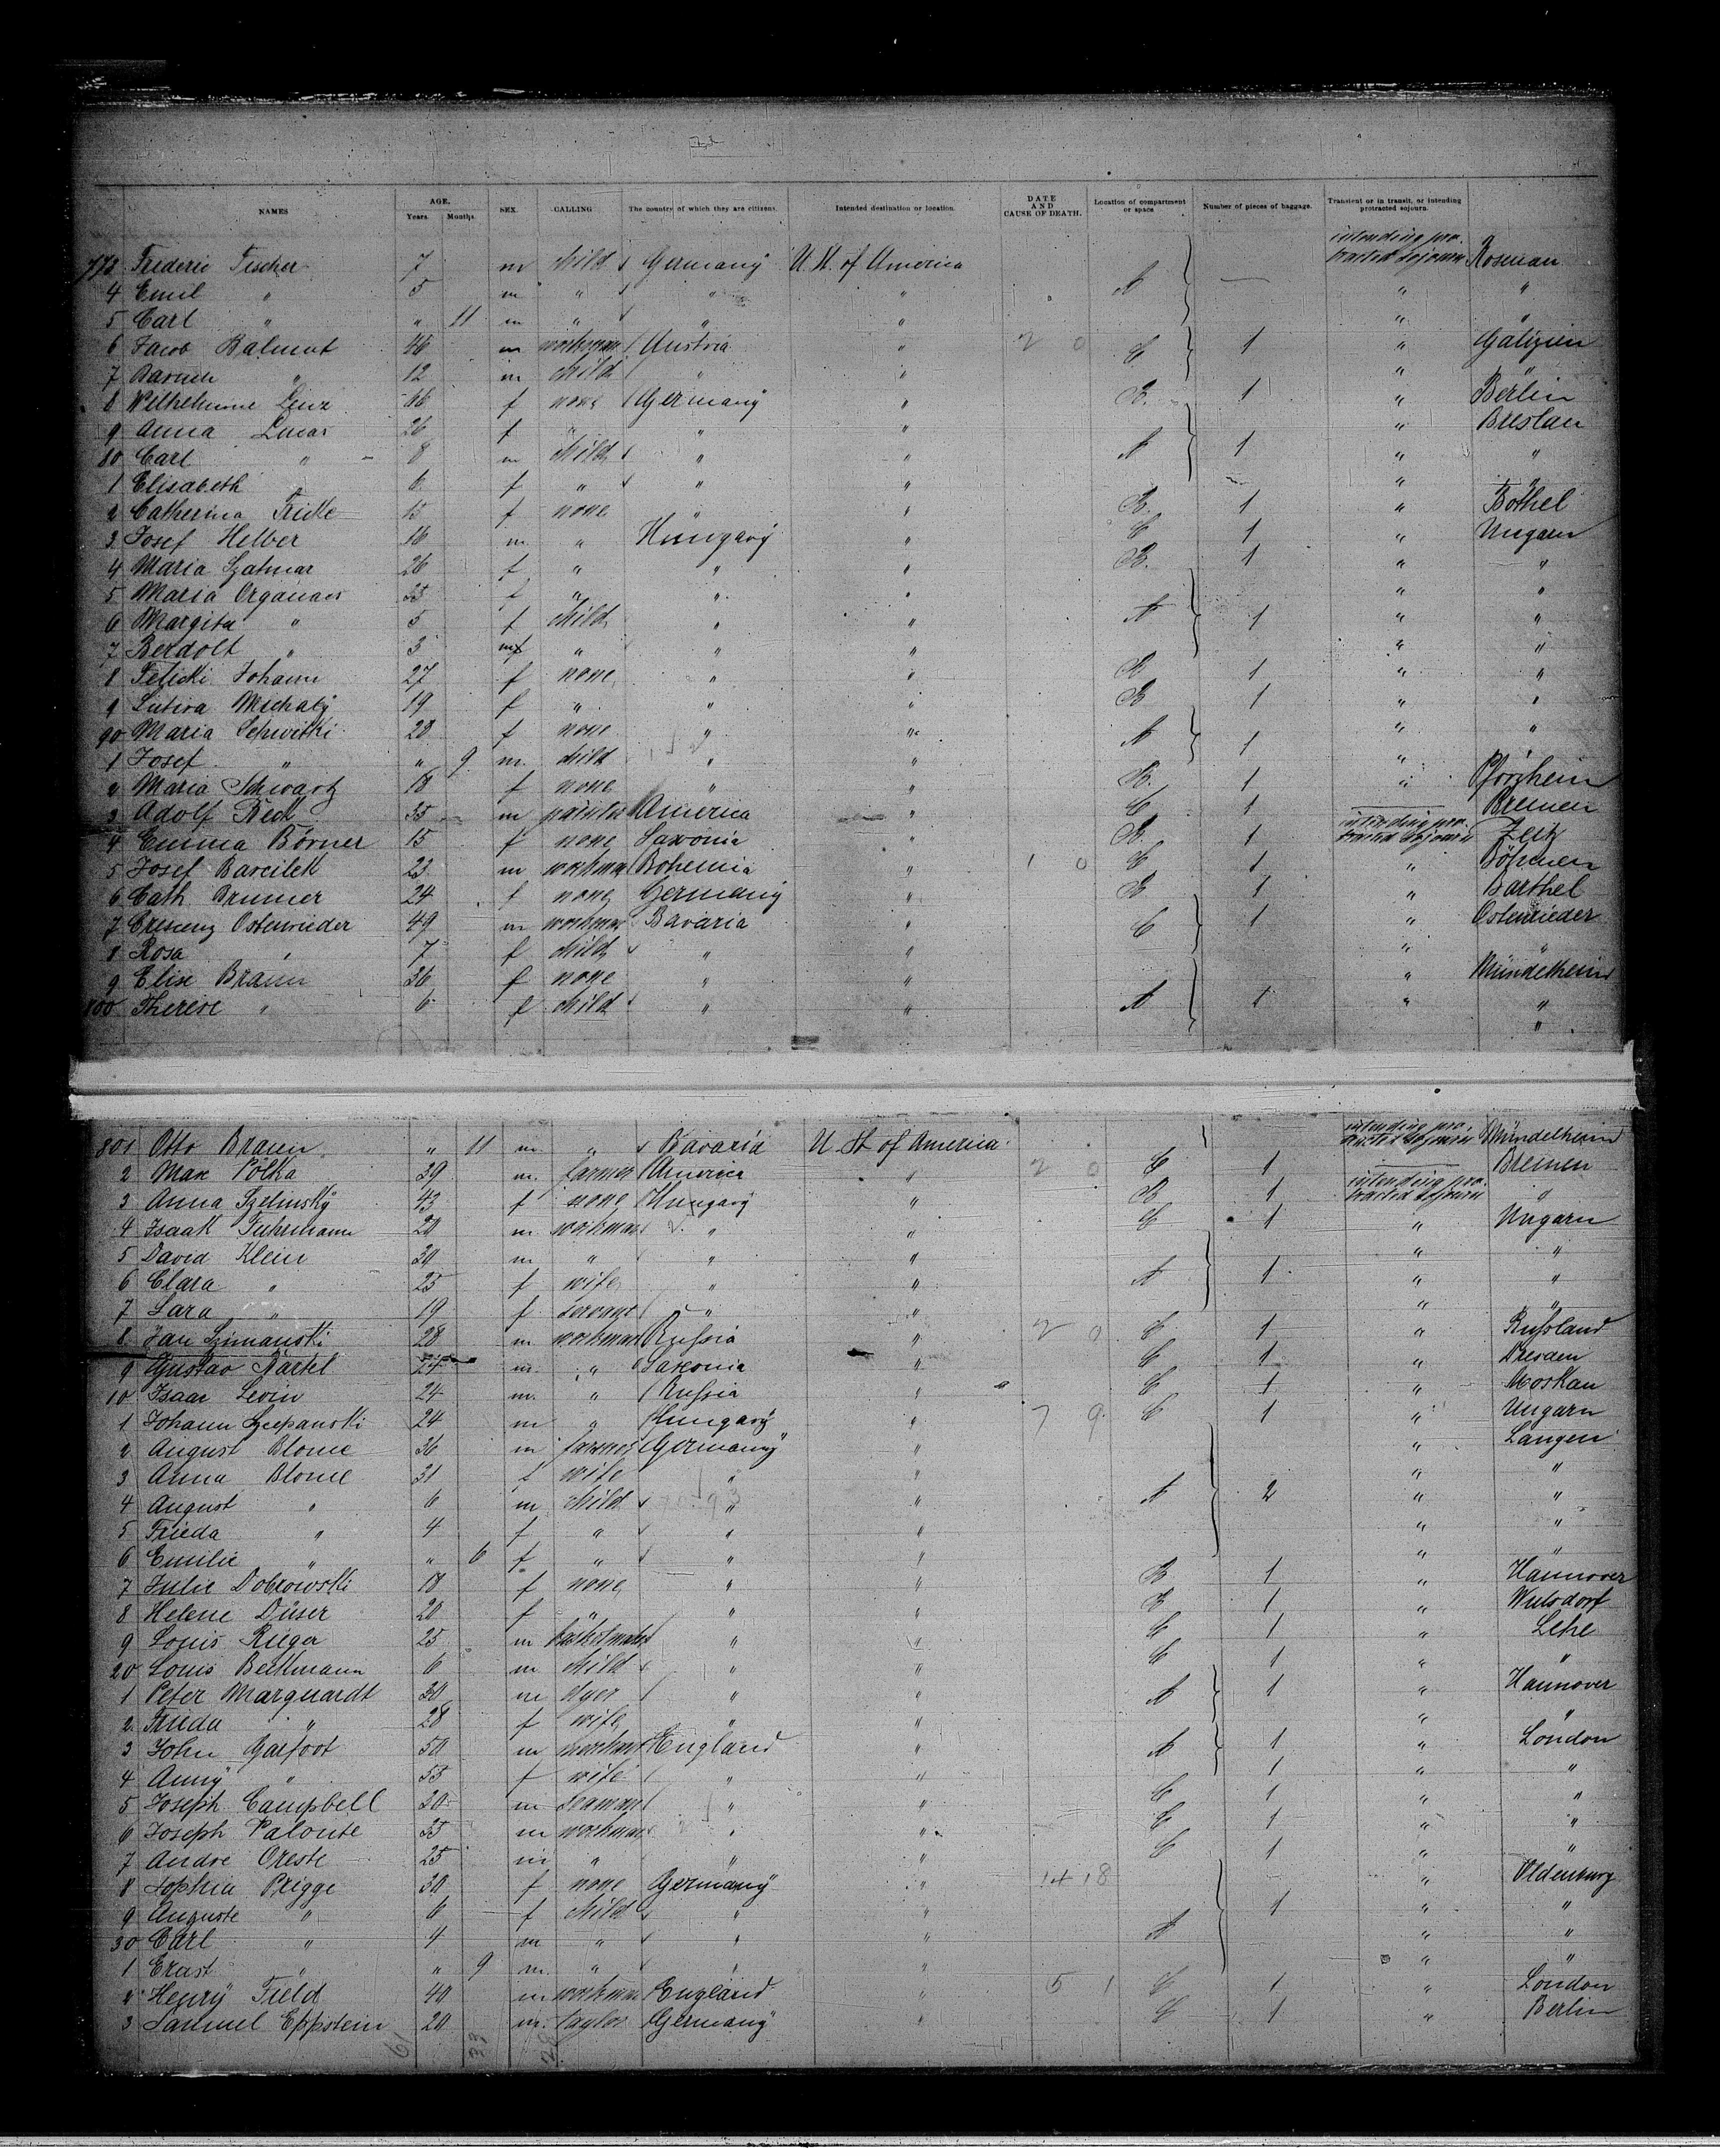 NAMES AGE. Years. Months. SEX. CALLING The country of which they are citizens. Intended destination or location. DATE AND CAUSE OF DEATH. Location of compartment or space Number of pieces of baggage. Transient or in transit, or intending protracted sojourn.
773 Frederic Fischer 7 m child Germany U. St. of America A — intending protracted sojourn Rosenau
4 Emil " 5 m " " " " "
5 Carl " " 11 m " " " " "
6 Jacob 46 m workman Austria " C 1 " Galizien
7 Baruch " 12 m child " " " "
8 Wilhelmine Lenz 66 f none Germany " B. 1 " Berlin
9 Anna Lucas 26 f " " " " Breslau
80 Carl " 8 m child " " A 1 " "
1 Elisabeth " 6 f " " " " "
2 Catherina Fricke f none " B. 1 " Bothel
3 Josef Helber 16 m " Hungary " C 1 " Ungarn
4 Maria Szatmar 26 f " " " B. 1 " "
5 Maria f " " " " "
6 Margita " 5 f child " " A 1 " "
7 Berdolt " 3 m " " " " "
8 Johann 27 f none " " B 1 " "
9 Michaly 19 f " " " B 1 " "
90 Maria 28 f none " " A 1 " "
1 Josef " " 9 m. child " " "
2 Maria Schwartz 18 f none " " B. 1 " Pforzheim
3 Adolf 35 m painter America " C 1 — Bremen
4 Emma Börner 15 f none Saxonia B. 1 intending protracted sojourn Zeitz
5 Josef Barcilek 23 m workman Bohemia " 1 0 C 1 " Böhmen
6 Cath Brunner 24 f none Germany " B 1 " Barthel
7 Crescenz Ostenrieder 49 m workman Bavaria " C 1 " Ostenrieder
8 Rosa " 7 f child " " " "
9 Elise Braun 36 f none " " " Mündelheim
800 Therese " 6 f child " " A 1 " "
801 Otto Braun " 11 m " Bavaria U. St. of America intending protracted sojourn Mündelheim
2 Max Polka 39 m. farmer America " 2 0 C 1 — Bremen
3 Anna Szelinsky 43 f none Hungary " B 1 intending protracted sojourn "
4 Isaak Fuhrmann 20 m workman " " C 1 " Ungarn
5 David Klein 30 m " " " " "
6 Clara " 25 f wife " " A 1 " "
7 Sara " 19 f servant " " " "
8 Jan Szimanski 28 m workman Russia " 2 0 C 1 " Russland
9 Gustav Bartel m. " Saxonia " C 1 " Dresden
10 Isaac Levin 24 m. " Russia " C 1 " Moskau
1 Johann Szepanski 24 m " Hungary " 7 9 C 1 " Ungarn
2 August Blome 36 m farmer Germany " " Langen
3 Anna Blome 31 f wife " " " "
4 August " 6 m child " " A 2 " "
5 Frieda " 4 f " " " " "
6 Emilie " " 6 f " " " " "
7 Julie Dobrowski 18 f none " " B 1 " Hannover
8 Helene Düser 20 f " " " B 1 " Wulsdorf
9 Louis Rieger 25 m basketmaker " " C 1 " Lehe
20 Louis Bellmann 6 m child " " C 1 " "
1 Peter Marquardt 30 m dyer " " A 1 " Hannover
2 Frieda " 28 f wife " " " "
3 John Garfoot 50 m England " A 1 " London
4 Anny " 55 f wife " " 1 " "
5 Joseph Campbell 20 m seaman " " C 1 " "
6 Joseph Palonte 35 m workman " " C 1 " "
7 Andre Oreste 25 m " " " C 1 " "
8 Sophia Prigge 30 f none Germany " 14 18 " Oldenburg
9 Auguste " 6 f child " " 1 " "
30 Carl " 4 m " " " A " "
1 Ernst " " 9 m. " " " " "
2 Henry Field 40 m workman England " 5 1 C 1 " London
3 Samuel Eppstein 20 m. taylor Germany " C 1 " Berlin
61 33 28